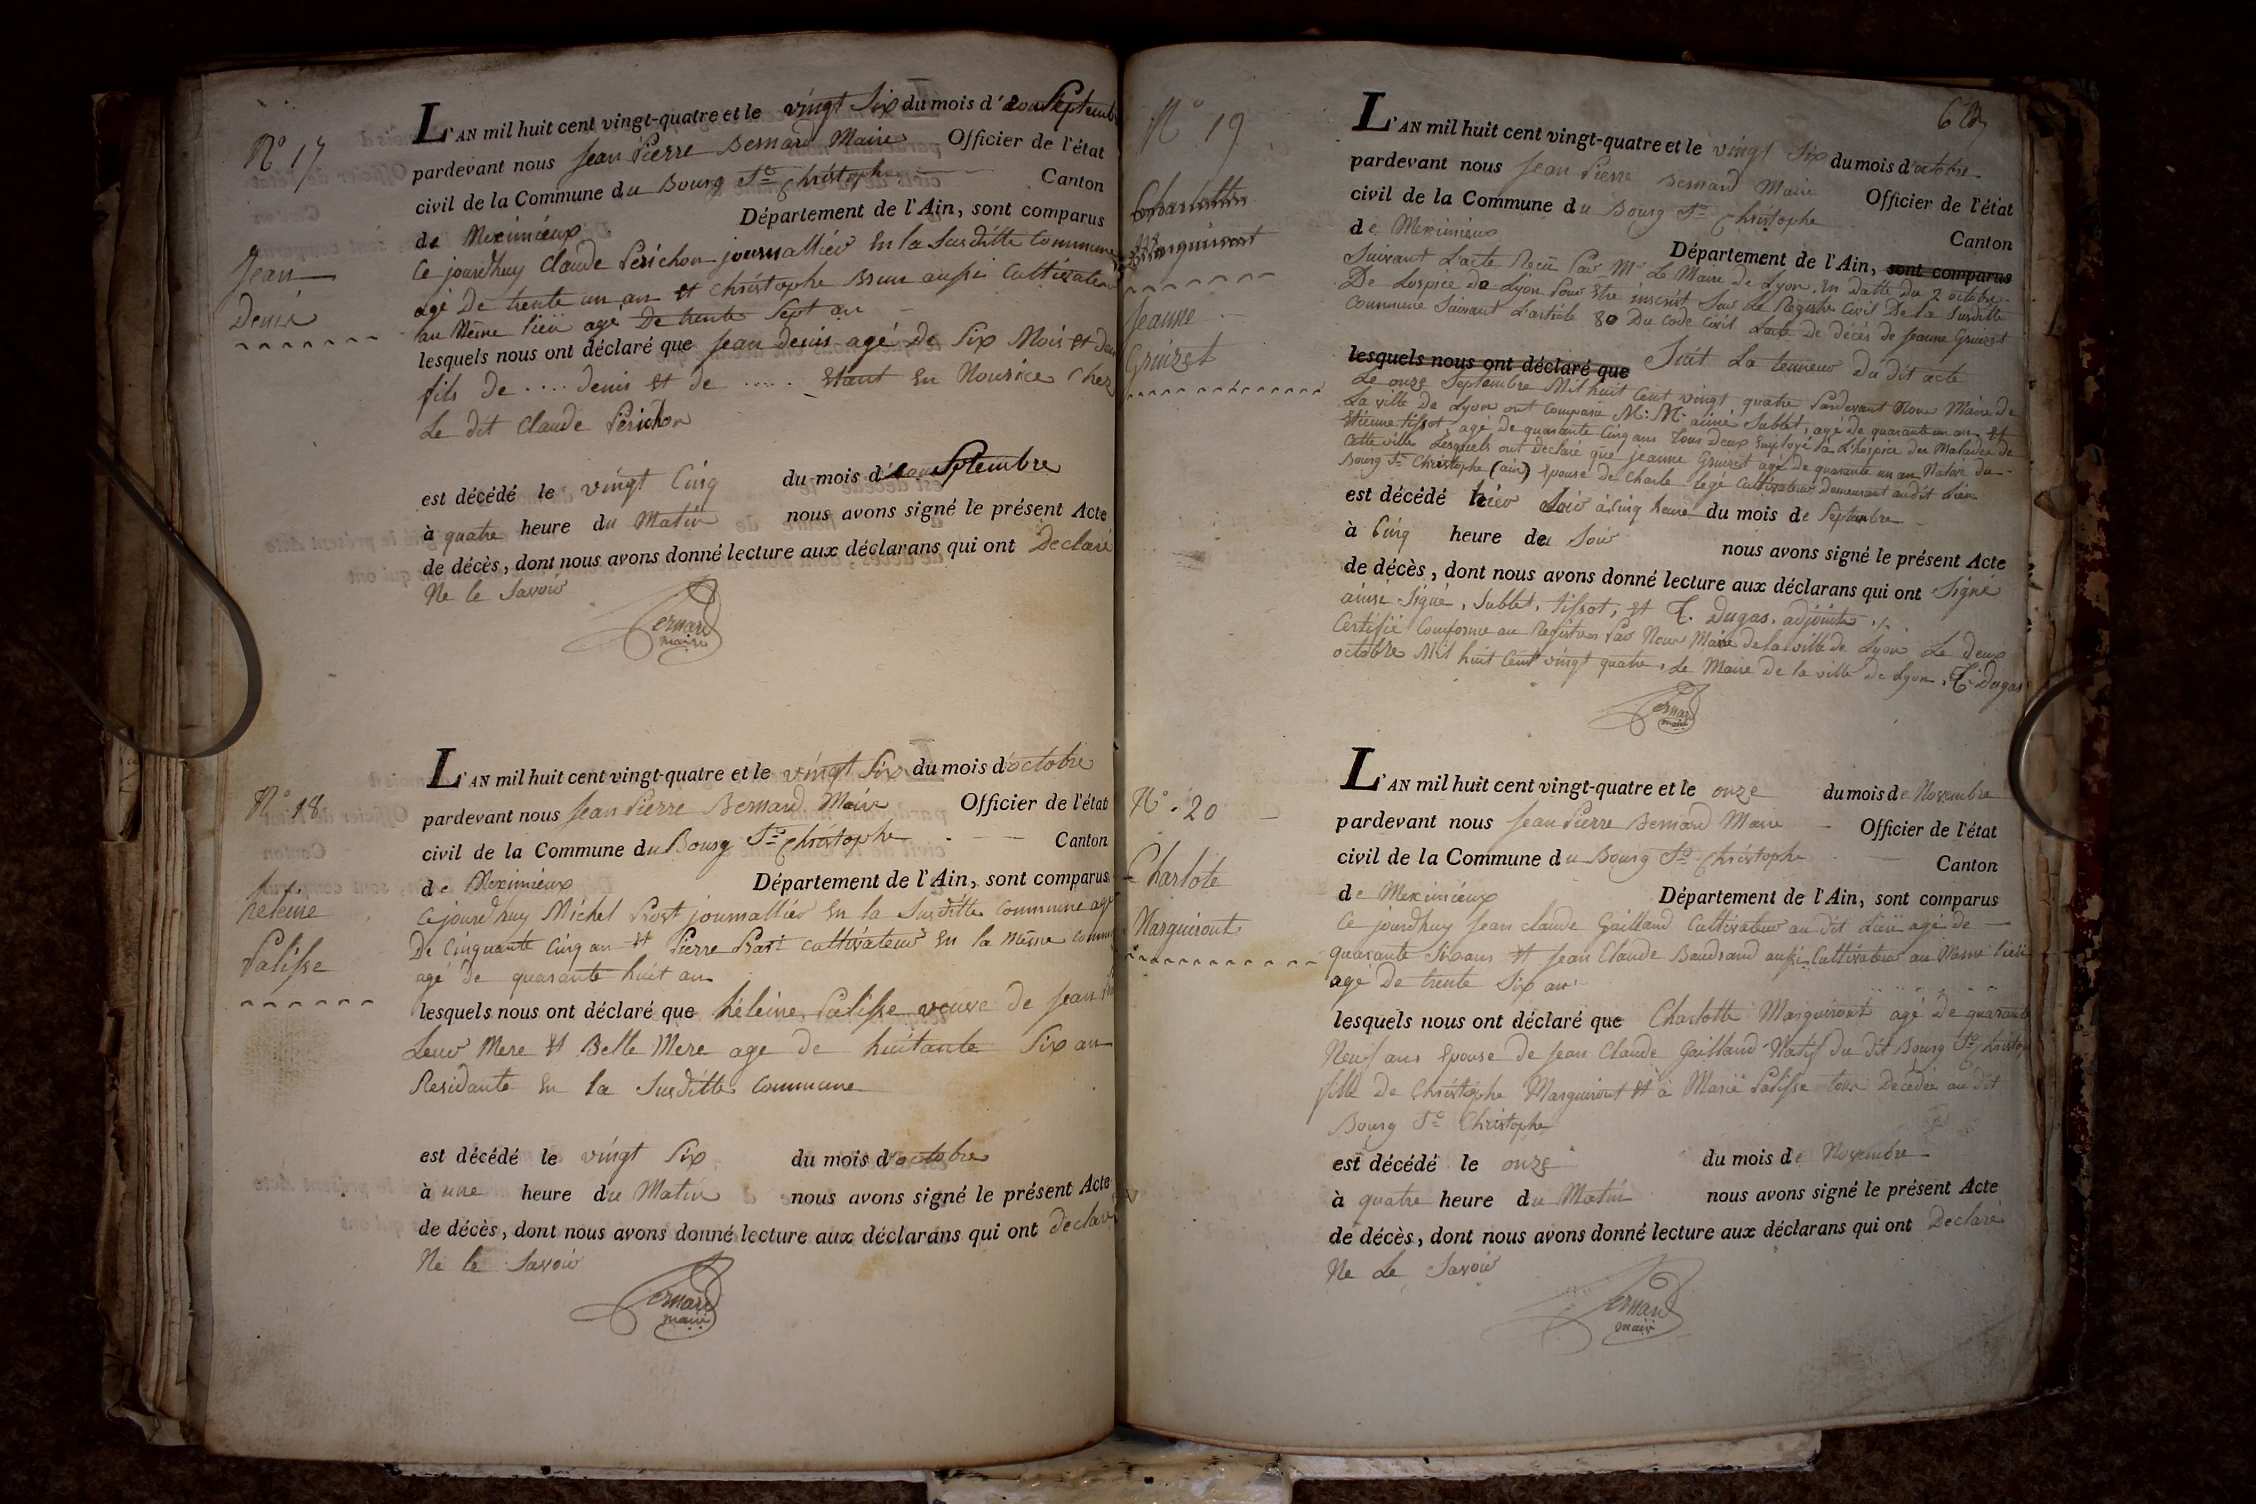 N° 17
Jean
Denis
L'AN mil huit cent vingt-quatre et le vingt Six du mois d' Septemb
pardevant nous Jean Pierre Bernard Maire Officier de l'état
civil de la Commune du Bourg St Christophe Canton
de Meximieux Département de l'Ain, sont comparus
Ce jourdhuy Claude Périchon journallier En la Susditte Commune
agé De trente un an et Christophe Brun aussi Cultivateur
au Même lieu agé De trente Sept an
lesquels nous ont déclaré que Jean denis agé De Six Mois et
fils de .... denis Et de ..... Etant En Nourice Chez
Le dit Claude Périchon
est décédé le vingt Cinq du mois d' Septembre
à quatre heure du Matin nous avons signé le présent Acte
de décès, dont nous avons donné lecture aux déclarans qui ont Declaré
Ne le Savoir
Bernard
maire
N° 18
heleine
Palisse
L'AN mil huit cent vingt-quatre et le vingt Six du mois d'octobre
pardevant nous Jean Pierre Bernard Maire Officier de l'état
civil de la Commune du Bourg St Christophe Canton
de Meximieux Département de l'Ain, sont comparus
Ce jourdhuy Michel Prost journallier En la Susditte Commune agé
De Cinquante Cinq an Et Pierre cultivateur En la même comm
agé de quarante huit an
lesquels nous ont déclaré que héleine Palisse veuve de Jean
Leur Mere Et Belle Mere age de huitante Six an
Residante En la Susditte Commune
est décédé le vingt Six du mois d'octobre
à une heure du Matin nous avons signé le présent Acte
de décès, dont nous avons donné lecture aux déclarans qui ont declaré
Ne le Savoir
Bernard
maire
N° 19
Charlotte
Marguiront
Jeanne
Gruizet
L'AN mil huit cent vingt-quatre et le vingt Six du mois d'octobre
pardevant nous Jean Pierre Bernard Maire Officier de l'état
civil de la Commune du Bourg St Christophe Canton
de Meximieux Département de l'Ain, sont comparus
Suivant L'acte Reçu Par Mr Le Maire de Lyon, En datte du 2 octobre
De Lospice de Lyon Pour Etre inscrit Sur Le Registre Civil De la Susditte
Commune Suivant L'article 80 Du Code Civil Lacte De décès de Jeanne Gruizet
lesquels nous ont déclaré que Suit La teneur du dit acte
Le onze Septembre Mil huit Cent vingt quatre Pardevant Nous Maire de
La ville De Lyon ont Comparu M: M: aimé Sublet, agé de quarante un an Et
Etienne tissot agé de quarante Cinq ans tous deux Employé à L'hospice des Malades de
Cette ville Lesquels ont declaré que jeanne Gruizet agé de quarante un an Native du
Bourg St Christophe (ain) Epouse de Charle Cultivateur Demeurant audit Lieu
est décédé hier Soir à Cinq heure du mois de Septembre
à Cinq heure du Soir nous avons signé le présent Acte
de décès, dont nous avons donné lecture aux déclarans qui ont Signé
ainse Signé, Sublet, tissot, Et T. Dugas, adjoint
Certifié Conforme au Registres Par Nous Maire de la ville de Lyon Le deux
octobre Mil huit Cent vingt quatre, Le Maire De la ville De Lyon, T. Dugas
Bernard
maire
N° 20
Charlote
Marguiront
L'AN mil huit cent vingt-quatre et le onze du mois de Novembre
pardevant nous Jean Pierre Bernard Maire Officier de l'état
civil de la Commune du Bourg St Christophe Canton
de Meximieux Département de l'Ain, sont comparus
Ce jourdhuy Jean claude Gaillard Cultivateur au dit Lieu agé de
quarante Six ans Et Jean Claude Baudrand aussi Cultivateur au Même lieu
agé De trente Six an
lesquels nous ont déclaré que Charlotte Marguiront agé De quarante
Neuf ans Epouse de Jean Claude Gaillard Natif du dit Bourg St Christop
fille De Christophe Marguiront Et à Marie Palisse tous Decedée au dit
Bourg St Christophe
est décédé le onze du mois de Novembre
à quatre heure du Matin nous avons signé le présent Acte
de décès, dont nous avons donné lecture aux déclarans qui ont Declaré
Ne Le Savoir
Bernard
maire